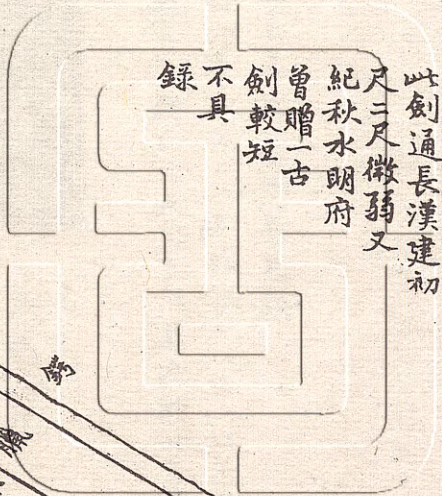 此劍通長漢建初
尺二尺微弱又
紀秋水明府
曾贈一古
劍較短
不具
錄
鍔
臘